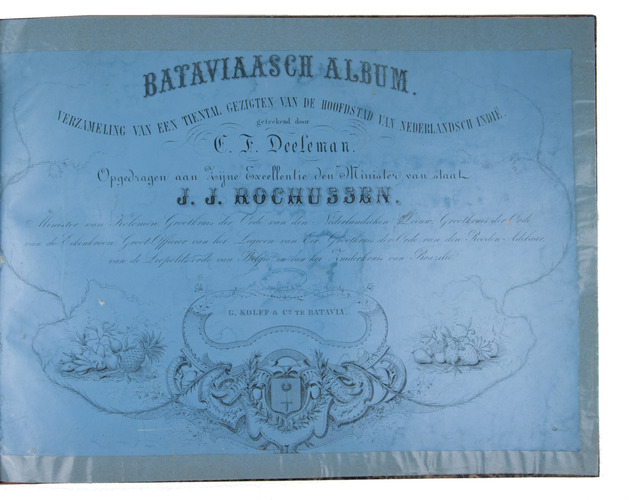 BATAVIAASCH ALBUM.
VERZAMELING VAN EEN TIENTAL GEZIGTEN VAN DE HOOFDSTAD VAN NEDERLANDSCH INDIE.
geteekend door
C. F. Deeleman.
Opgedragen aan Zijne Excellentie den Minister van staat
J. J. ROCHUSSEN.
Minister van Kolonien, Grootkruis der Orde van den Nederlandschen Leeuw, Grootkruis der Orde
van de Eikenkroon, Groot Officier van het Legioen van Eer, Grootkruis der Orde van den Rooden Adelaar,
van de Leopolds orde van België en van het Zuiderkruis van Brazilie.
G. KOLFF & Co. TE BATAVIA.